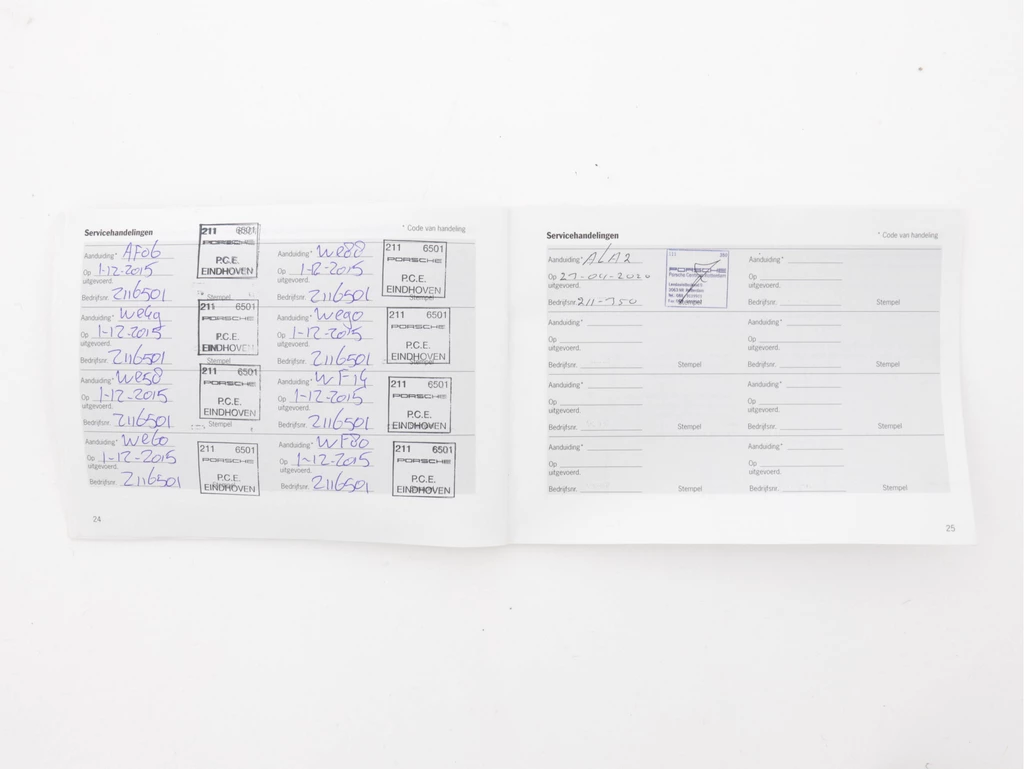 Servicehandelingen
* Code van handeling
Aanduiding* AF06
Op 1-12-2015
uitgevoerd.
Bedrijfsnr. 2116501
211 6501
PORSCHE
P.C.E.
EINDHOVEN
Stempel
Aanduiding* We80
Op 1-12-2015
uitgevoerd.
Bedrijfsnr. 2116501
211 6501
PORSCHE
P.C.E.
EINDHOVEN
Stempel
Aanduiding*
Op 1-12-2015
uitgevoerd.
Bedrijfsnr. 2116501
211 6501
PORSCHE
P.C.E.
EINDHOVEN
Stempel
Aanduiding* We90
Op 1-12-2015
uitgevoerd.
Bedrijfsnr. 2116501
211 6501
PORSCHE
P.C.E.
EINDHOVEN
Aanduiding* We50
Op 1-12-2015
uitgevoerd.
Bedrijfsnr. 2116501
211 6501
PORSCHE
P.C.E.
EINDHOVEN
Stempel
Aanduiding* WF14
Op 1-12-2015
uitgevoerd.
Bedrijfsnr. 2116501
211 6501
PORSCHE
P.C.E.
EINDHOVEN
Aanduiding* We60
Op 1-12-2015
uitgevoerd.
Bedrijfsnr. 2116501
211 6501
PORSCHE
P.C.E.
EINDHOVEN
Aanduiding* WF80
Op 1-12-2015
uitgevoerd.
Bedrijfsnr. 2116501
211 6501
PORSCHE
P.C.E.
EINDHOVEN
24
Servicehandelingen
* Code van handeling
Aanduiding* ALA2
Op
uitgevoerd.
Bedrijfsnr. 211-750
PORSCHE
Stempel
Aanduiding*
Op
uitgevoerd.
Bedrijfsnr.
Stempel
Aanduiding*
Op
uitgevoerd.
Bedrijfsnr.
Stempel
Aanduiding*
Op
uitgevoerd.
Bedrijfsnr.
Stempel
Aanduiding*
Op
uitgevoerd.
Bedrijfsnr.
Stempel
Aanduiding*
Op
uitgevoerd.
Bedrijfsnr.
Stempel
Aanduiding*
Op
uitgevoerd.
Bedrijfsnr.
Stempel
Aanduiding*
Op
uitgevoerd.
Bedrijfsnr.
Stempel
25